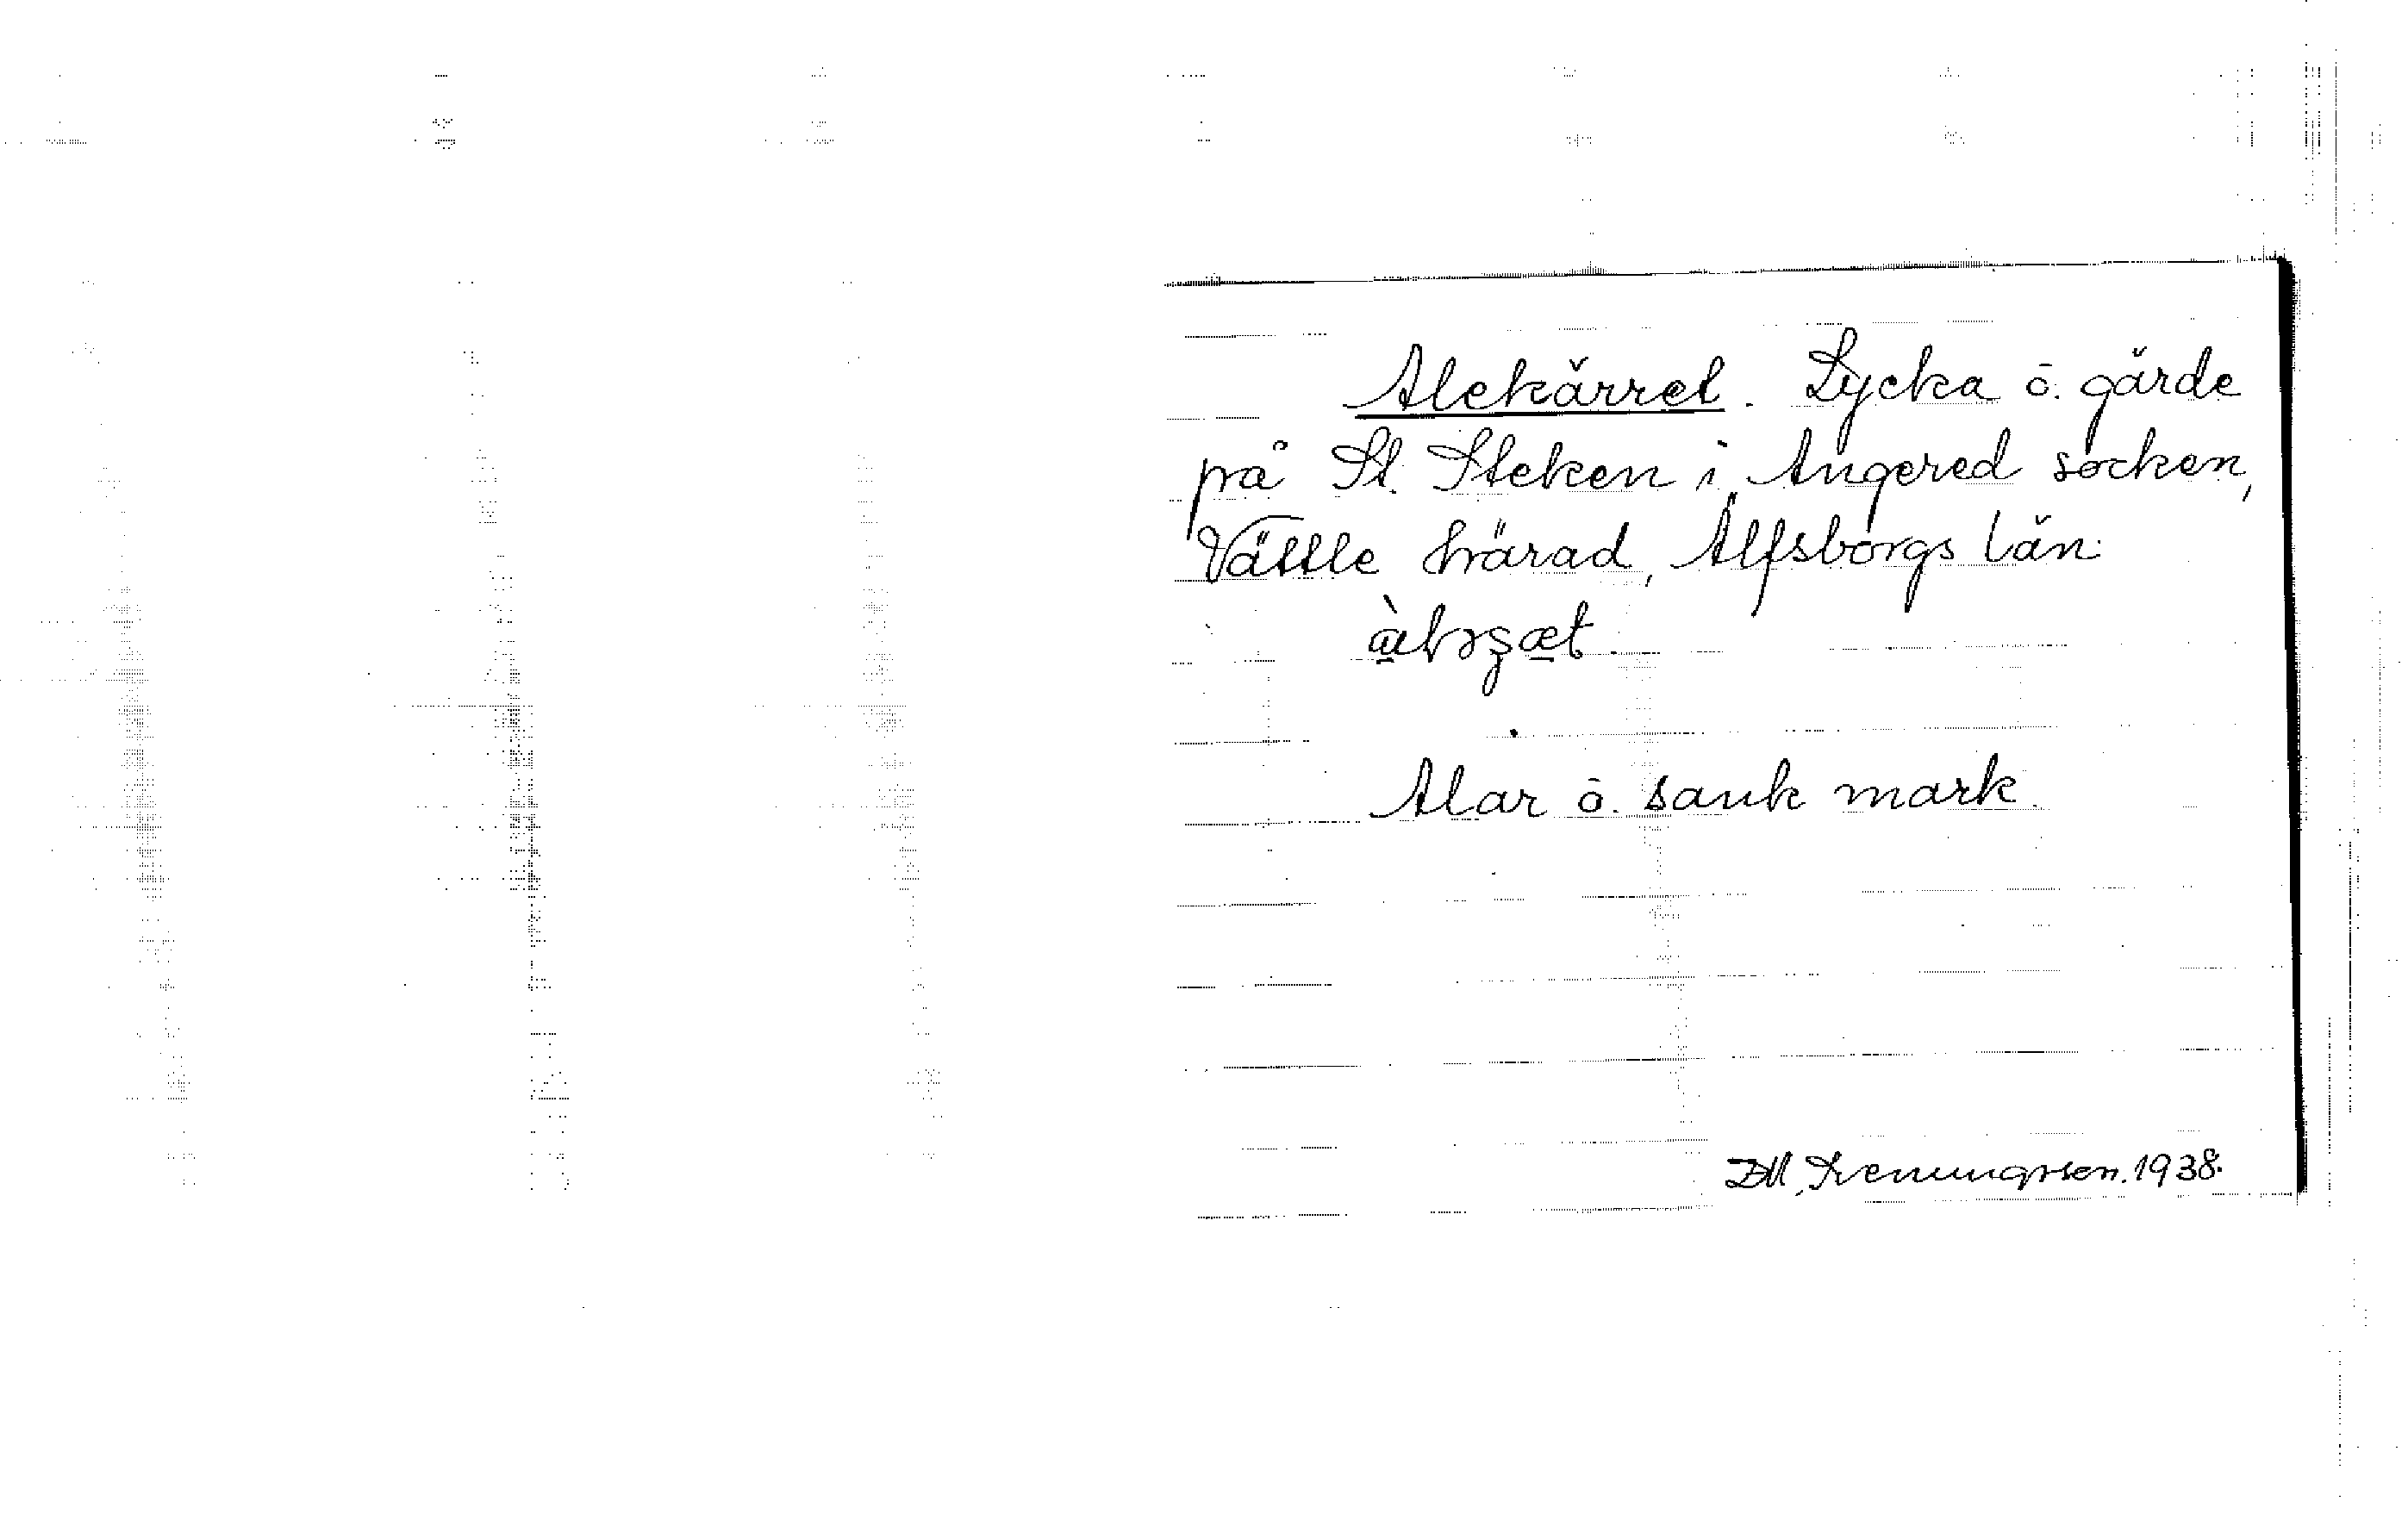 Alekärret. Lycka o. gärde
på St. Steken i Angered socken,
Vättle härad, Älfsborgs län
Alar o. sank mark.
1938.